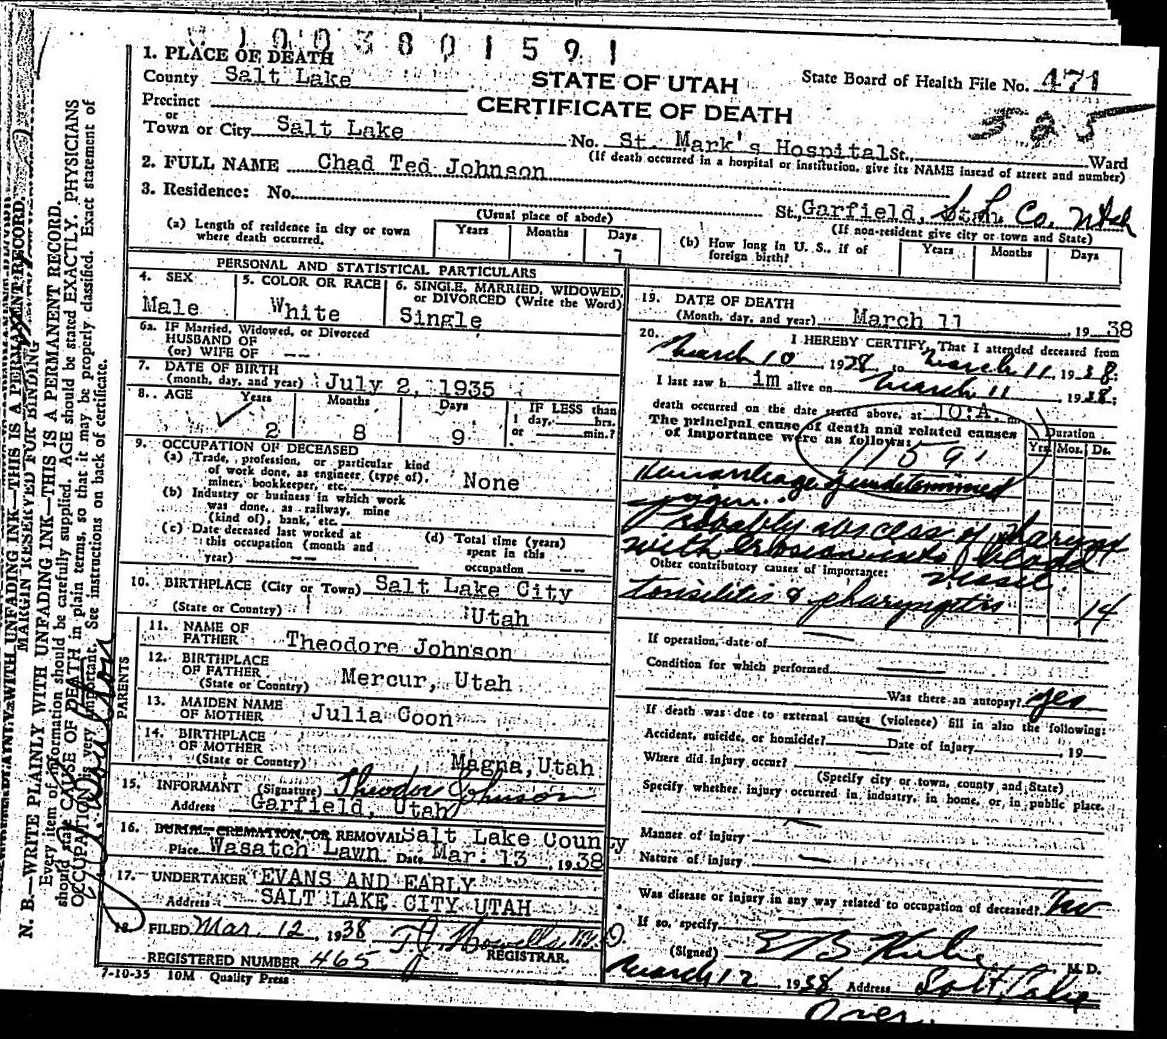 1003801591
1. PLACE OF DEATH
County Salt Lake
STATE OF UTAH
State Board of Health File No. 471
Precinct
or
CERTIFICATE OF DEATH
325
Town or City Salt Lake No. St. Mark's Hospital St., Ward
(If death occurred in a hospital or institution, give its NAME insead of street and number)
2. FULL NAME Chad Ted Johnson
3. Residence: No. St., Garfield, Utah S. L. Co. Utah
(Usual place of abode) (If non-resident give city or town and State)
(a) Length of residence in city or town where death occurred. Years Months Days
(b) How long in U. S., if of foreign birth? Years Months Days
PERSONAL AND STATISTICAL PARTICULARS
4. SEX 5. COLOR OR RACE 6. SINGLE, MARRIED, WIDOWED, or DIVORCED (Write the Word)
Male White Single
6a. IF Married, Widowed, or Divorced
HUSBAND OF
(or) WIFE OF --
7. DATE OF BIRTH
(month, day, and year) July 2, 1935
8. AGE Years Months Days IF LESS than
2 8 9 day, hrs.
or min.?
9. OCCUPATION OF DECEASED
(a) Trade, profession, or particular kind
of work done, as engineer, (type of),
miner, bookkeeper, etc. None
(b) Industry or business in which work
was done, as railway, mine
(kind of), bank, etc.
(c) Date deceased last worked at
this occupation (month and
year) --
(d) Total time (years)
spent in this
occupation --
10. BIRTHPLACE (City or Town) Salt Lake City
(State or Country) Utah
PARENTS
11. NAME OF
FATHER Theodore Johnson
12. BIRTHPLACE
OF FATHER
(State or Country) Mercur, Utah
13. MAIDEN NAME
OF MOTHER Julia Coon
14. BIRTHPLACE
OF MOTHER
(State or Country) Magna, Utah
15. INFORMANT (Signature) Theodor Johnson
Address Garfield, Utah
16. BURIAL, CREMATION, OR REMOVAL Salt Lake County
Place Wasatch Lawn Date Mar. 13, 1938
17. UNDERTAKER EVANS AND EARLY
Address SALT LAKE CITY UTAH
18. FILED Mar. 12, 1938
REGISTRAR.
REGISTERED NUMBER 465
7-10-35 10M Quality Press
19. DATE OF DEATH
(Month, day, and year) March 11 1938
20. I HEREBY CERTIFY, That I attended deceased from
March 10, 1938, to March 11, 1938;
I last saw h im alive on March 11, 1938;
death occurred on the date stated above, at 10:A. m.
The principal cause of death and related causes
of importance were as follows:
Duration
Yrs. Mos. Ds.
Hemorrhage, undetermined
origin.
Probably abscess of pharynx
with erosion into blood
vessel.
Other contributory causes of importance:
tonsilitis & pharyngitis 14
If operation, date of
Condition for which performed
Was there an autopsy? yes
If death was due to external causes (violence) fill in also the following:
Accident, suicide, or homicide? Date of injury 19
Where did injury occur?
(Specify city or town, county and State)
Specify whether injury occurred in industry, in home, or in public place.
Manner of injury
Nature of injury
Was disease or injury in any way related to occupation of deceased? No
If so, specify
(Signed) M.D.
March 12 1938 Address Salt Lake
Over.
N. B.—WRITE PLAINLY WITH UNFADING INK—THIS IS A PERMANENT RECORD.
MARGIN RESERVED FOR BINDING
Every item of information should be carefully supplied. AGE should be stated EXACTLY. PHYSICIANS
should state CAUSE OF DEATH in plain terms, so that it may be properly classified. Exact statement of
OCCUPATION is very important. See instructions on back of certificate.